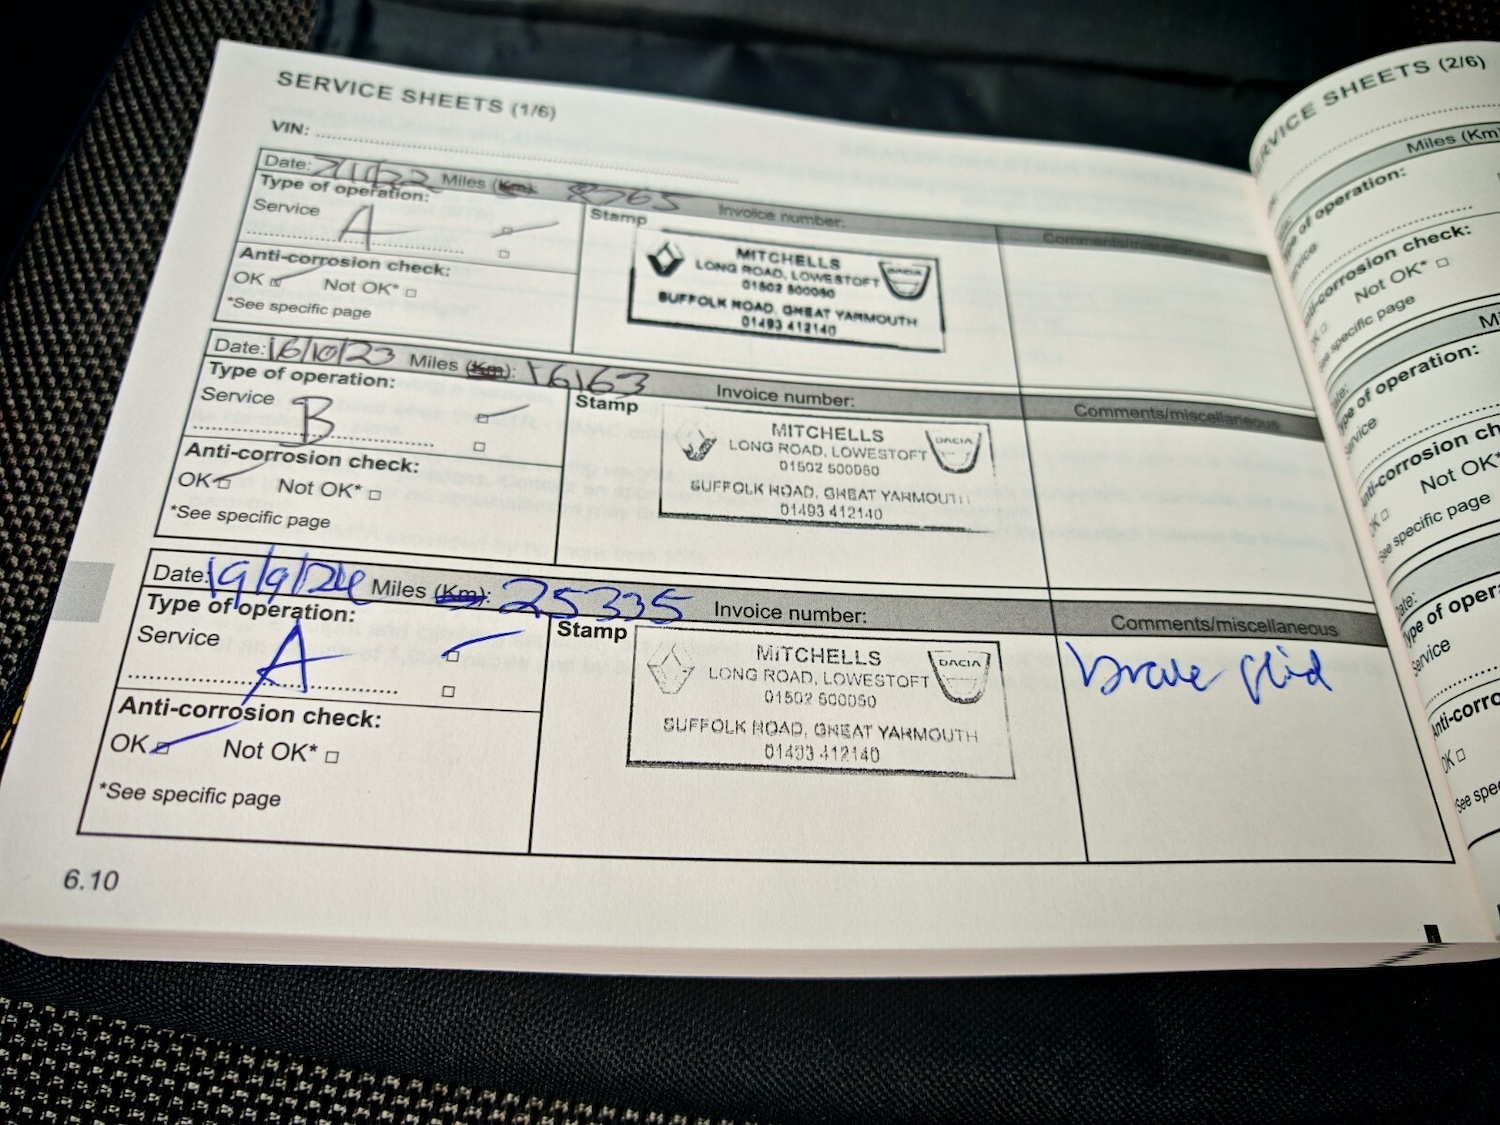 SERVICE SHEETS (1/6)
VIN:
Date: Miles (Km): 8765 Invoice number: Comments/miscellaneous
Type of operation:
Service A
Anti-corrosion check:
OK Not OK*
*See specific page
Stamp
MITCHELLS
LONG ROAD, LOWESTOFT
DACIA
01502 500060
SUFFOLK ROAD, GREAT YARMOUTH
01493 412140
Date: 16/10/23 Miles (Km): 16163 Invoice number: Comments/miscellaneous
Type of operation:
Service B
Anti-corrosion check:
OK Not OK*
*See specific page
Stamp
MITCHELLS
LONG ROAD, LOWESTOFT
DACIA
01502 500060
SUFFOLK ROAD, GREAT YARMOUTH
01493 412140
Date: 19/9/24 Miles (Km): 25335 Invoice number: Comments/miscellaneous
Type of operation:
Service A
Anti-corrosion check:
OK Not OK*
*See specific page
Stamp
MITCHELLS
LONG ROAD, LOWESTOFT
DACIA
01502 500060
SUFFOLK ROAD, GREAT YARMOUTH
01493 412140
brake fluid
6.10
SERVICE SHEETS (2/6)
Miles (Km
of operation:
Not OK*
specific page
of operation:
Not OK*
specific page